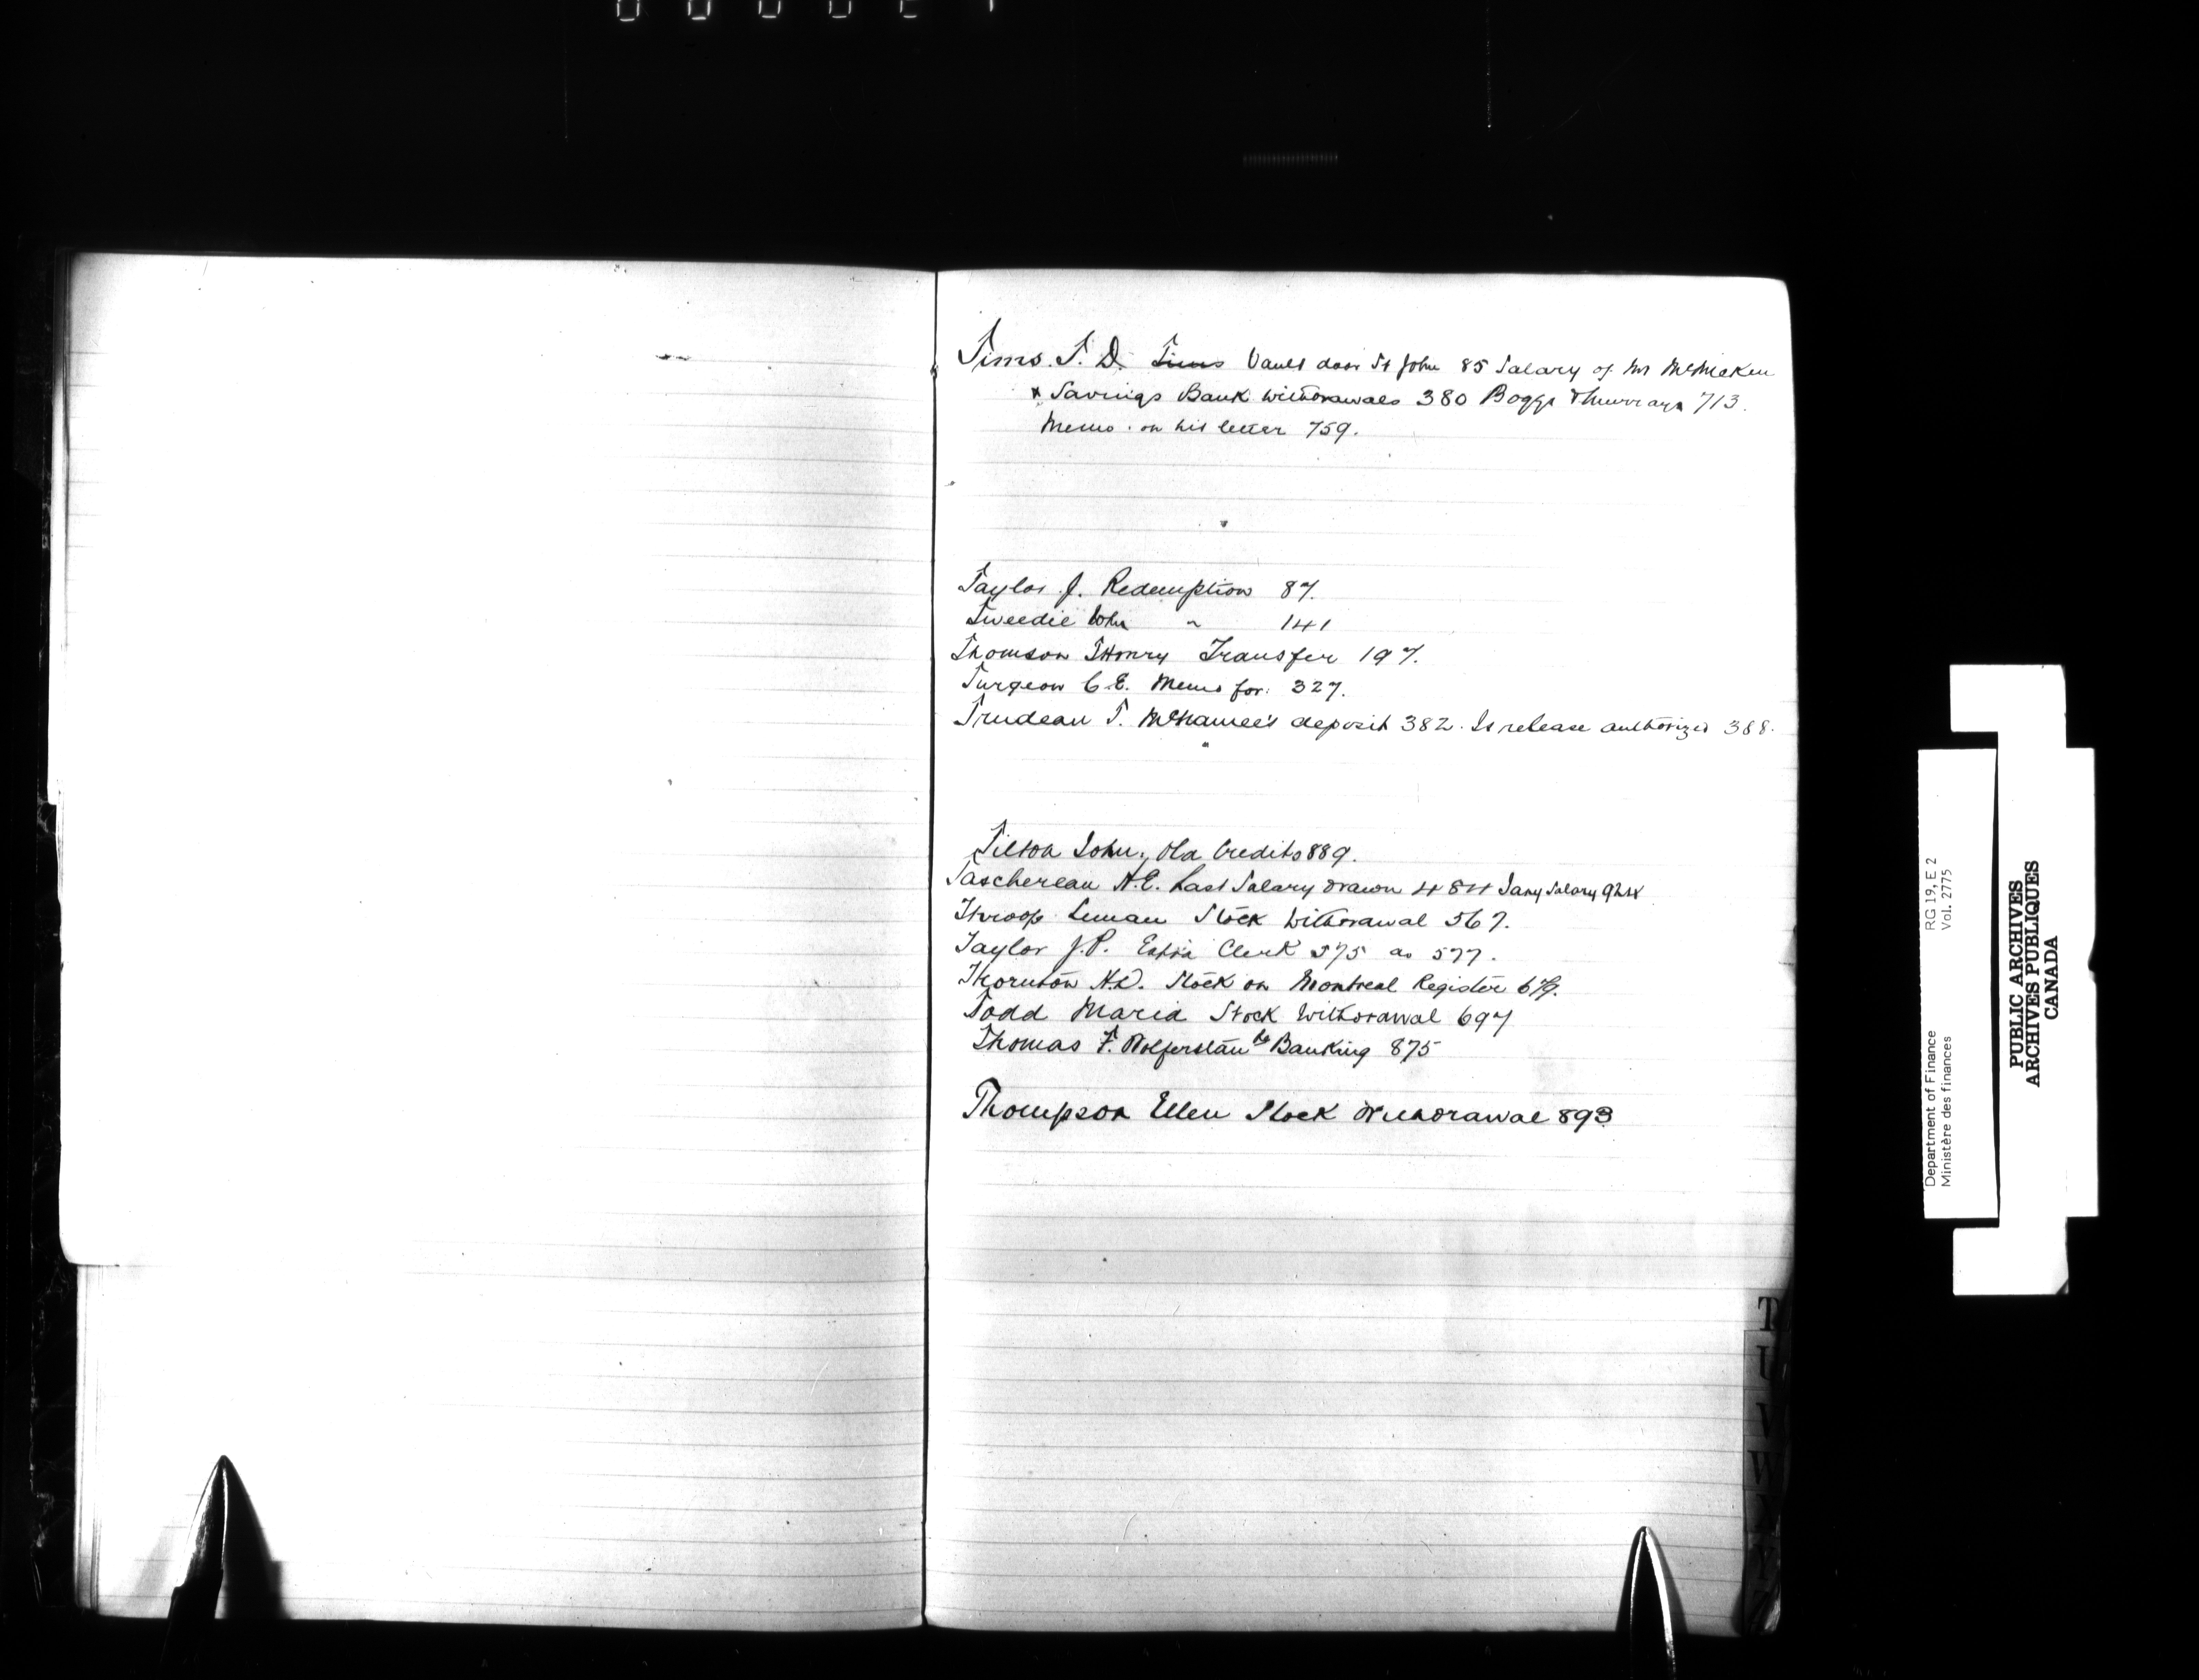 Tims. T. D. Tims Vault door St John 85 Salary of Mr McMicken
& Savings Bank Withdrawals 380 Boggs & Murrays 713.
Memo. on his letter 759.
Taylor J. Redemption 87.
Tweedie John " 141
Thomson T Henry Transfer 197.
Turgeon C.E. Memo for. 327.
Trudeau T. McNamee's deposit 382. Is release authorized 388.
Tilton John. Old Credits 889.
Taschereau H.E. Last Salary drawn 484 Jany Salary 924
Throop Leman Stock Withdrawal 567.
Taylor J.P. Extra Clerk 575 as 577.
Thornton H.D. Stock on Montreal Register 679.
Todd Maria Stock Withdrawal 697
Thomas F. Wolferstan re Banking 875
Thompson Ellen Stock Withdrawal 893
T
U
V
W
X
Y
Department of Finance RG 19, E 2
Ministère des finances Vol. 2775
PUBLIC ARCHIVES
ARCHIVES PUBLIQUES
CANADA